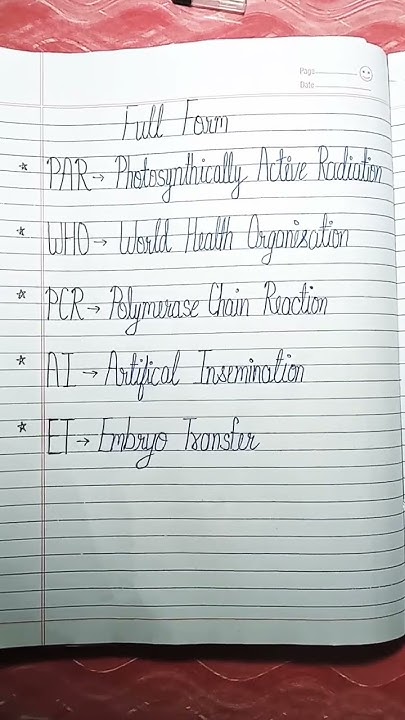 Page
Date
Full Form
* PAR → Photosynthically Active Radiation
* WHO → World Health Organisation
* PCR → Polymerase Chain Reaction
* AI → Artifical Insemination
* ET → Embryo Transfer